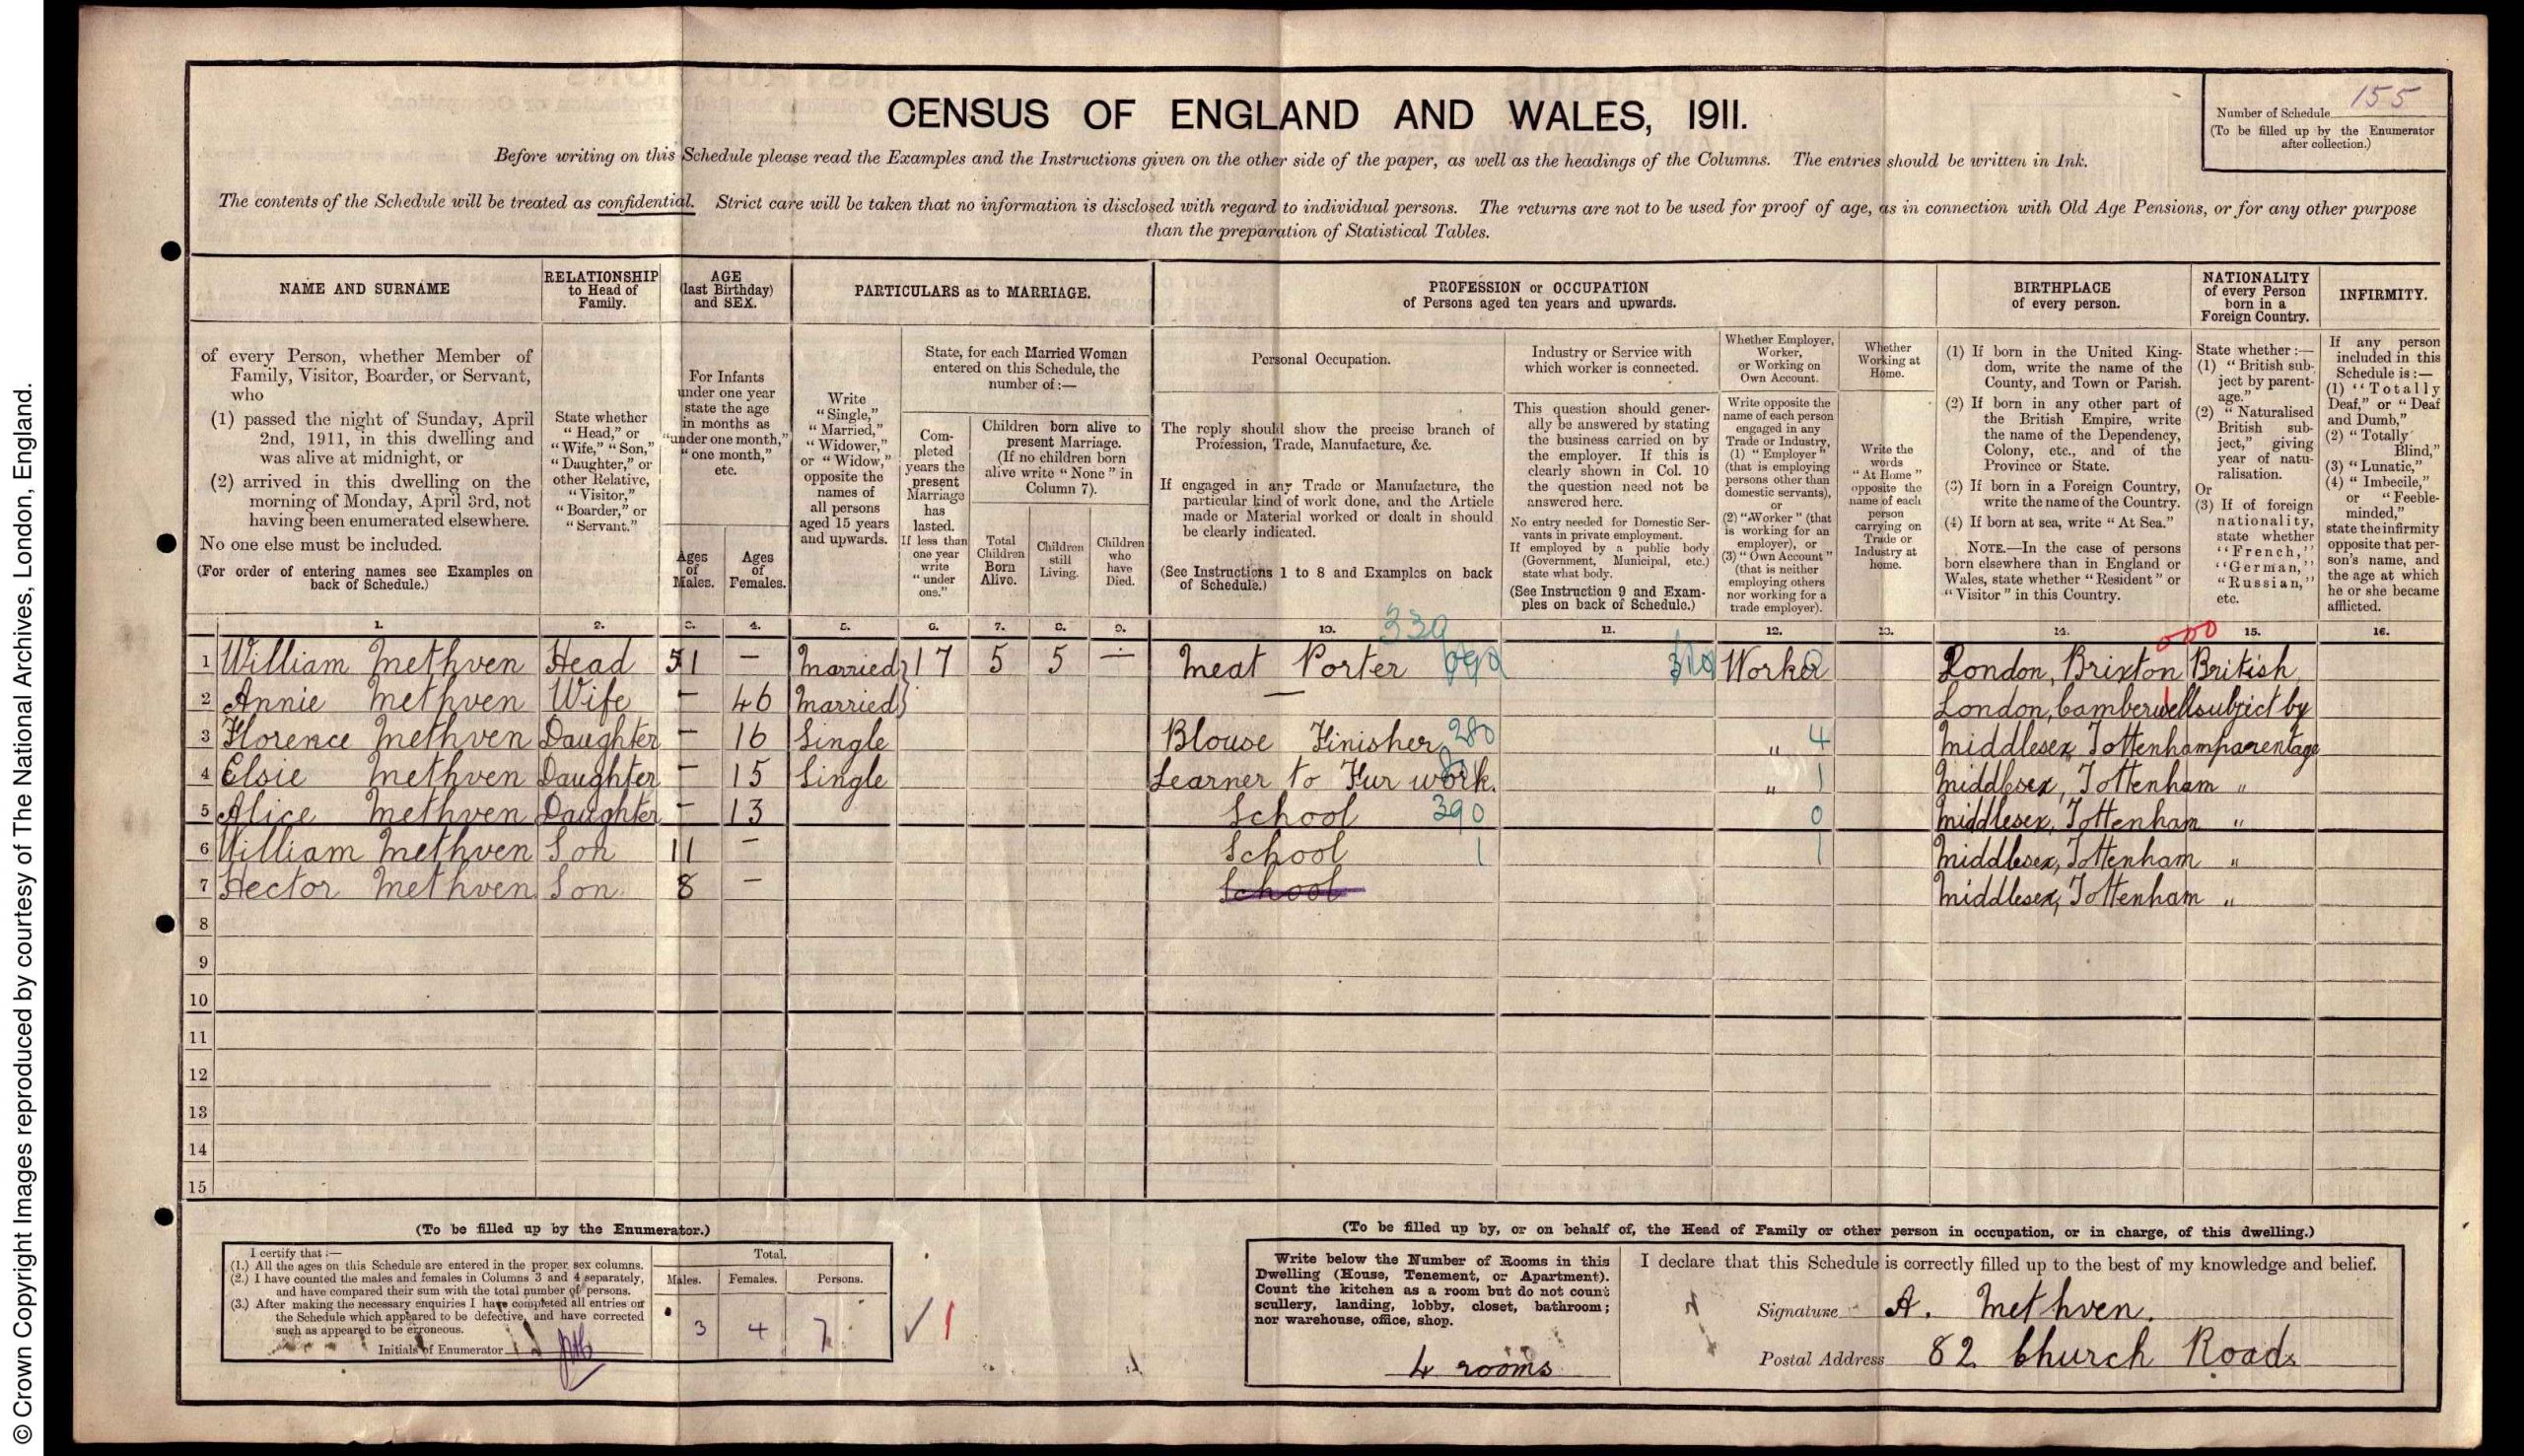 © Crown Copyright Images reproduced by courtesy of The National Archives, London, England.
CENSUS OF ENGLAND AND WALES, 1911.
Number of Schedule 155
(To be filled up by the Enumerator
after collection.)
Before writing on this Schedule please read the Examples and the Instructions given on the other side of the paper, as well as the headings of the Columns. The entries should be written in Ink.
The contents of the Schedule will be treated as confidential. Strict care will be taken that no information is disclosed with regard to individual persons. The returns are not to be used for proof of age, as in connection with Old Age Pensions, or for any other purpose
than the preparation of Statistical Tables.
NAME AND SURNAME
of every Person, whether Member of
Family, Visitor, Boarder, or Servant,
who
(1) passed the night of Sunday, April
2nd, 1911, in this dwelling and
was alive at midnight, or
(2) arrived in this dwelling on the
morning of Monday, April 3rd, not
having been enumerated elsewhere.
No one else must be included.
(For order of entering names see Examples on
back of Schedule.)
RELATIONSHIP
to Head of
Family.
State whether
"Head," or
"Wife," "Son,"
"Daughter," or
other Relative,
"Visitor,"
"Boarder," or
"Servant."
AGE
(last Birthday)
and SEX.
For Infants
under one year
state the age
in months as
"under one month,"
"one month,"
etc.
Ages
of
Males.
Ages
of
Females.
PARTICULARS as to MARRIAGE.
Write
"Single,"
"Married,"
"Widower,"
or "Widow,"
opposite the
names of
all persons
aged 15 years
and upwards.
State, for each Married Woman
entered on this Schedule, the
number of:—
Com-
pleted
years the
present
Marriage
has
lasted.
If less than
one year
write
"under
one."
Children born alive to
present Marriage.
(If no children born
alive write "None" in
Column 7).
Total
Children
Born
Alive.
Children
still
Living.
Children
who
have
Died.
PROFESSION or OCCUPATION
of Persons aged ten years and upwards.
Personal Occupation.
The reply should show the precise branch of
Profession, Trade, Manufacture, &c.
If engaged in any Trade or Manufacture, the
particular kind of work done, and the Article
made or Material worked or dealt in should
be clearly indicated.
(See Instructions 1 to 8 and Examples on back
of Schedule.)
Industry or Service with
which worker is connected.
This question should gener-
ally be answered by stating
the business carried on by
the employer. If this is
clearly shown in Col. 10
the question need not be
answered here.
No entry needed for Domestic Ser-
vants in private employment.
If employed by a public body
(Government, Municipal, etc.)
state what body.
(See Instruction 9 and Exam-
ples on back of Schedule.)
Whether Employer,
Worker,
or Working on
Own Account.
Write opposite the
name of each person
engaged in any
Trade or Industry,
(1) "Employer"
(that is employing
persons other than
domestic servants),
or
(2) "Worker" (that
is working for an
employer), or
(3) "Own Account"
(that is neither
employing others
nor working for a
trade employer).
Whether
Working at
Home.
Write the
words
"At Home"
opposite the
name of each
person
carrying on
Trade or
Industry at
home.
BIRTHPLACE
of every person.
(1) If born in the United King-
dom, write the name of the
County, and Town or Parish.
(2) If born in any other part of
the British Empire, write
the name of the Dependency,
Colony, etc., and of the
Province or State.
(3) If born in a Foreign Country,
write the name of the Country.
(4) If born at sea, write "At Sea."
NOTE.—In the case of persons
born elsewhere than in England or
Wales, state whether "Resident" or
"Visitor" in this Country.
NATIONALITY
of every Person
born in a
Foreign Country.
State whether:—
(1) "British sub-
ject by parent-
age."
(2) "Naturalised
British sub-
ject," giving
year of natu-
ralisation.
Or
(3) If of foreign
nationality,
state whether
"French,"
"German,"
"Russian,"
etc.
INFIRMITY.
If any person
included in this
Schedule is:—
(1) "Totally
Deaf," or "Deaf
and Dumb,"
(2) "Totally
Blind,"
(3) "Lunatic,"
(4) "Imbecile,"
or "Feeble-
minded,"
state the infirmity
opposite that per-
son's name, and
the age at which
he or she became
afflicted.
1. 2. 3. 4. 5. 6. 7. 8. 9. 10. 330 11. 12. 13. 14. 000 15. 16.
1 William Methven Head 51 — Married 17 5 5 — Meat Porter Worker London, Brixton British
2 Annie Methven Wife — 46 Married — London, Camberwell subject by
3 Florence Methven Daughter — 16 Single Blouse Finisher 280 " 4 Middlesex Tottenham parentage
4 Elsie Methven Daughter — 15 Single Learner to Fur work. " 1 Middlesex, Tottenham "
5 Alice Methven Daughter — 13 School 390 0 Middlesex, Tottenham "
6 William Methven Son 11 — School 1 1 Middlesex, Tottenham "
7 Hector Methven Son 8 — School Middlesex, Tottenham "
8
9
10
11
12
13
14
15
(To be filled up by the Enumerator.)
I certify that:—
(1.) All the ages on this Schedule are entered in the proper sex columns.
(2.) I have counted the males and females in Columns 3 and 4 separately,
and have compared their sum with the total number of persons.
(3.) After making the necessary enquiries I have completed all entries on
the Schedule which appeared to be defective, and have corrected
such as appeared to be erroneous.
Initials of Enumerator
Total.
Males. Females. Persons.
3 4 7
(To be filled up by, or on behalf of, the Head of Family or other person in occupation, or in charge, of this dwelling.)
Write below the Number of Rooms in this
Dwelling (House, Tenement, or Apartment).
Count the kitchen as a room but do not count
scullery, landing, lobby, closet, bathroom;
nor warehouse, office, shop.
4 rooms
I declare that this Schedule is correctly filled up to the best of my knowledge and belief.
Signature A. Methven.
Postal Address 82 Church Road.